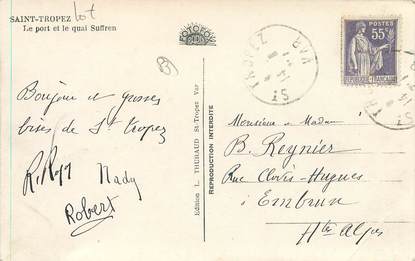 SAINT-TROPEZ
Le port et le quai Suffren
lot
Bonjour et grosses
bises de St tropez
Nady
Robert
Edition L. THURAUD St-Tropez Var
REPRODUCTION INTERDITE
ST TROPEZ
VAR
POSTES
55c
REPUBLIQUE FRANCAISE
Monsieur - Madame
B. Reynier
Rue Clovis-Hugues
Embrun
Htes Alpes